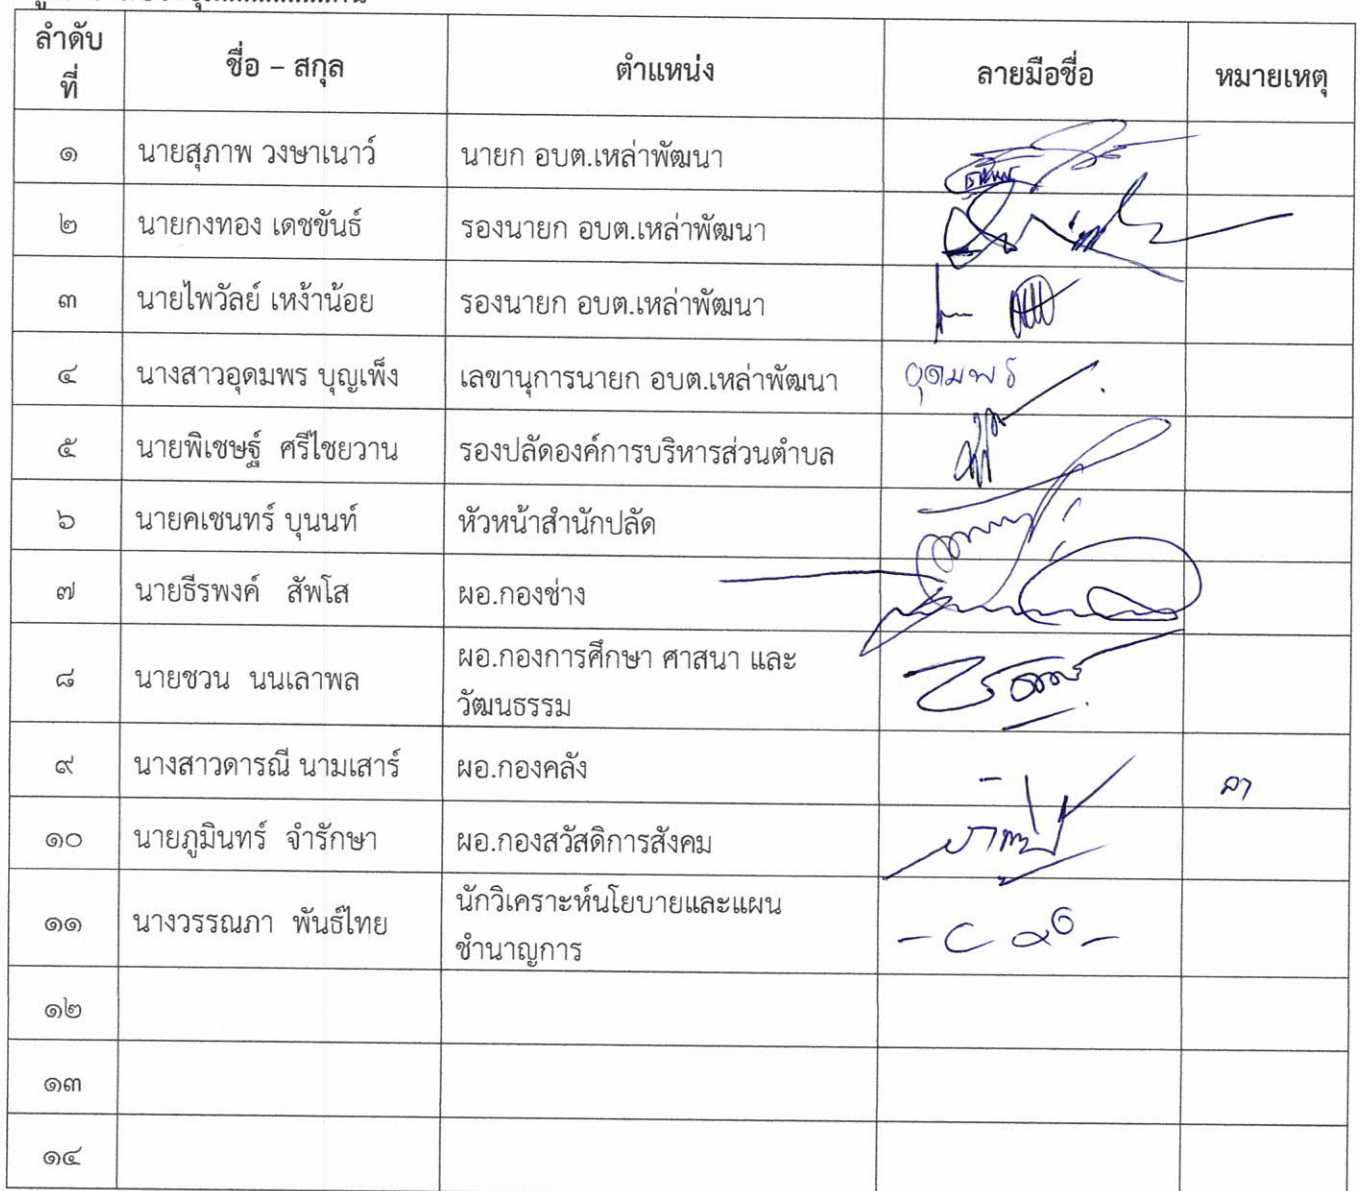 ลำดับ
ที่
ชื่อ – สกุล
ตำแหน่ง
ลายมือชื่อ
หมายเหตุ
๑ นายสุภาพ วงษาเนาว์ นายก อบต.เหล่าพัฒนา
๒ นายกงทอง เดชขันธ์ รองนายก อบต.เหล่าพัฒนา
๓ นายไพวัลย์ เหง้าน้อย รองนายก อบต.เหล่าพัฒนา
๔ นางสาวอุดมพร บุญเพ็ง เลขานุการนายก อบต.เหล่าพัฒนา อุดมพร
๕ นายพิเชษฐ์ ศรีไชยวาน รองปลัดองค์การบริหารส่วนตำบล
๖ นายคเชนทร์ บุนนท์ หัวหน้าสำนักปลัด
๗ นายธีรพงค์ สัพโส ผอ.กองช่าง
๘ นายชวน นนเลาพล ผอ.กองการศึกษา ศาสนา และ
วัฒนธรรม
๙ นางสาวดารณี นามเสาร์ ผอ.กองคลัง - ลา
๑๐ นายภูมินทร์ จำรักษา ผอ.กองสวัสดิการสังคม
๑๑ นางวรรณภา พันธ์ไทย นักวิเคราะห์นโยบายและแผน
ชำนาญการ
๑๒
๑๓
๑๔